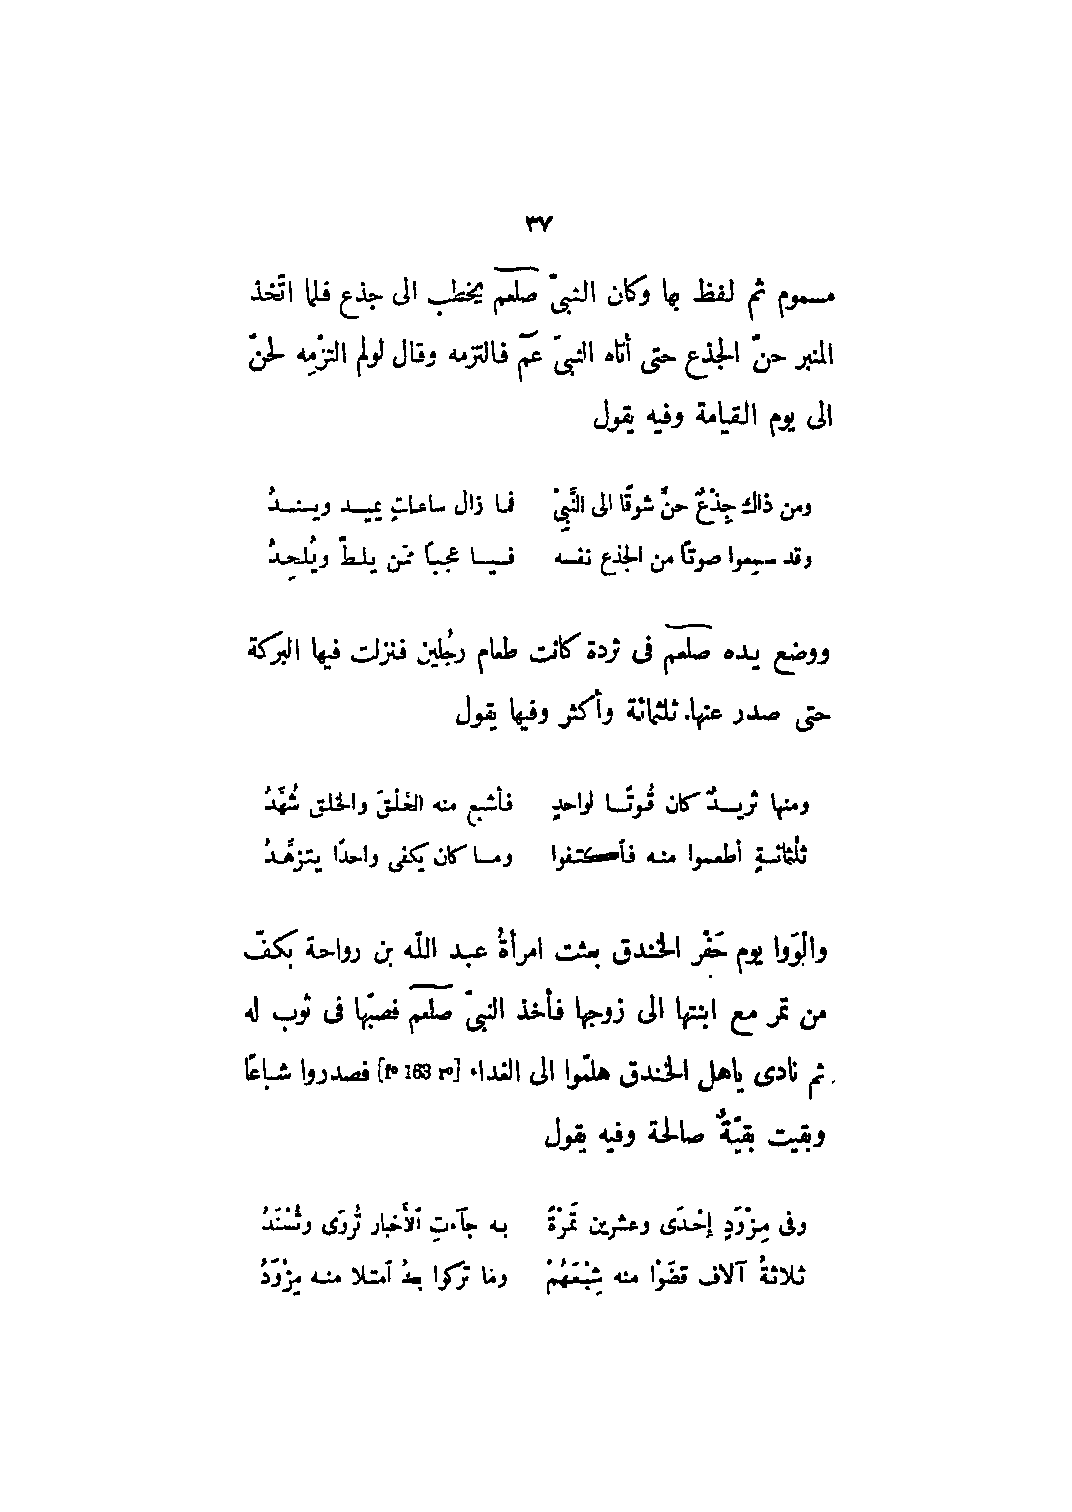 ٣٧
مسموم ثم لفظ بها وكان النبىّ صلعم يخطب الى جذع فلما اتّخذ
المنبر حنّ الجذع حتى أتاه النبىّ عمّ فالتزمه وقال لولم التزْمِه لحنّ
الى يوم القيامة وفيه يقول
ومن ذاك جِذْعٌ حنَّ شوقًا الى النَّبِىْ فما زال ساعاتٍ يميد ويسندُ
وقد سمِعوا صوتًا من الجذع نفسه فيا عجبًا ممّن يلطّ ويُلحِدُ
ووضع يده صلعم فى ثردة كانت طعام رجُلين فنزلت فيها البركة
حتى صدر عنها ثلثمائة وأكثر وفيها يقول
ومنها ثريدٌ كان قُوتًا لواحدٍ فأشبع منه الخَلْقَ والخلق شُهَّدُ
ثلْثمائةٍ أطعموا منه فأكتفوا وما كان يكفى واحدًا يتزهَّدُ
والَوَوا يوم حَفْر الخندق بعثت امرأةُ عبد اللّه بن رواحة بكفّ
من تمر مع ابنتها الى زوجها فأخذ النبىّ صلعم فصبّها فى ثوب له
ثم نادى ياهل الخندق هلمّوا الى الغداء [f° 163 r°] فصدروا شباعًا
وبقيت بقيّةٌ صالحة وفيه يقول
وفى مِزْوَدٍ إحْدَى وعشرين تَمْرَةً به جآءتِ ٱلأَخبار تُروَى وتُسْنَدُ
ثلاثةُ آلاف قضَوْا منه شِبْعَهُمْ وما تركوا بعدُ ٱمتلا منه مِزْوَدُ